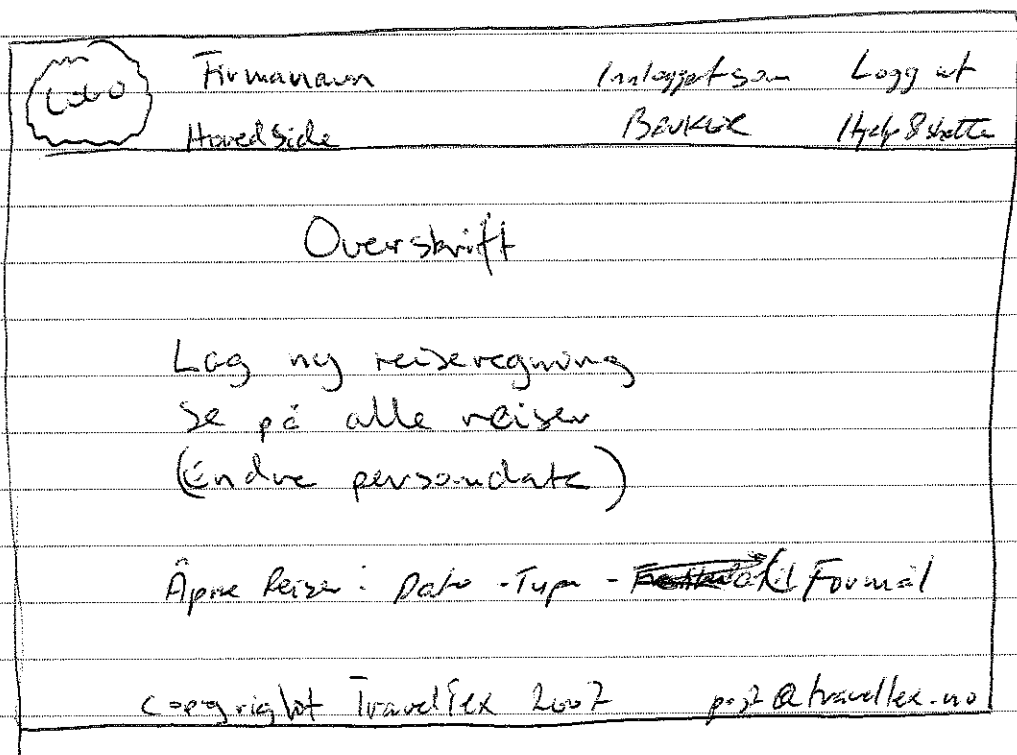 Logo Firmanavn Innlogget som Logg ut
Hovedside Bruker Hjelp & støtte
Overskrift
Lag ny reiseregning
Se på alle reiser
(Endre persondata)
Åpne Reiser: Dato - Type - Formål
Copyright Traveltex 2007 post@traveltex.no